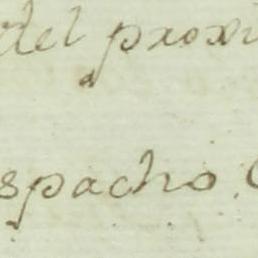 del proxi
spacho